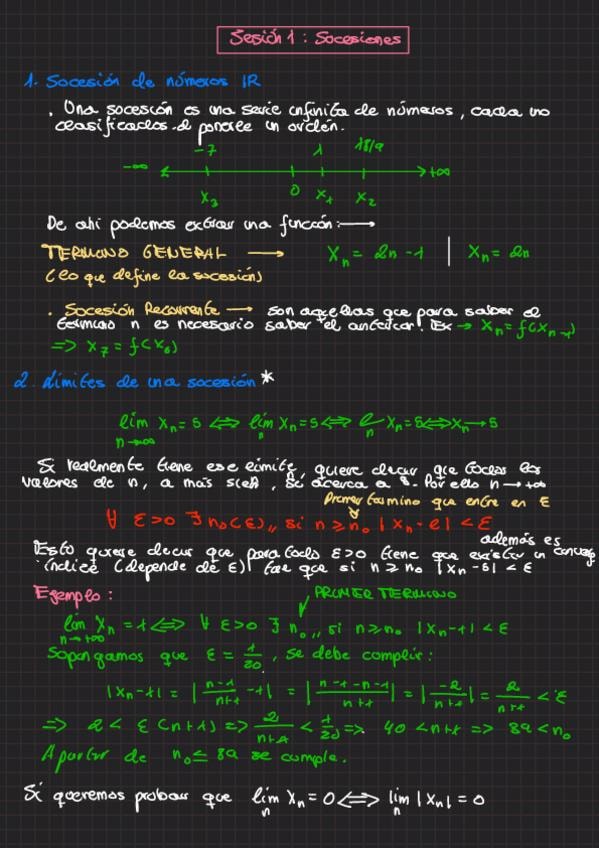 Sesión 1 : Socesiones
1. Socesión de números IR
. Una socesión es una serie infinita de números, cada uno
clasificados al ponerle un orden.
-7 1 18/9
-∞ +∞
x₃ 0 x₁ x₂
De ahi podemos extraer una función: →
TERMINO GENERAL → Xₙ = 2n - 1 | Xₙ = 2n
(lo que define la socesión)
. Socesión Recurrente → son aquellas que para saber el
término n es necesario saber el anterior! Ex → Xₙ = f(Xₙ₋₁)
=> X₇ = f(X₆)
2. Límites de una socesión *
lim Xₙ = s <=> lim Xₙ = s <=> l Xₙ = s <=> Xₙ → s
n→∞ n n
Si realmente tiene ese límite, quiere decir que todos los
valores de n, a mas se acerca a s. Por ello n → +∞
Primer termino que entre en ε
∀ ε>0 ∃ n₀(ε),, si n ≥ n₀ |Xₙ - l| < ε
además es
Esto quiere decir que para todo ε>0 tiene que existir un
índice (depende de ε) tal que si n ≥ n₀ |Xₙ - s| < ε
Ejemplo: PRIMER TERMINO
lim Xₙ = 1 <=> ∀ ε>0 ∃ n₀,, si n ≥ n₀ |Xₙ - 1| < ε
n→+∞
Sopongamos que ε = 1/20, se debe complir:
|Xₙ - 1| = |n-1/n+1 - 1| = |n-1-n-1/n+1| = |-2/n+1| = 2/n+1 < ε
=> 2 < ε(n+1) => 2/n+1 < 1/20 => 40 < n+1 => 39 < n₀
A partir de n₀ ≤ 39 se cumple.
Si queremos probar que lim Xₙ = 0 <=> lim |Xₙ| = 0
n n